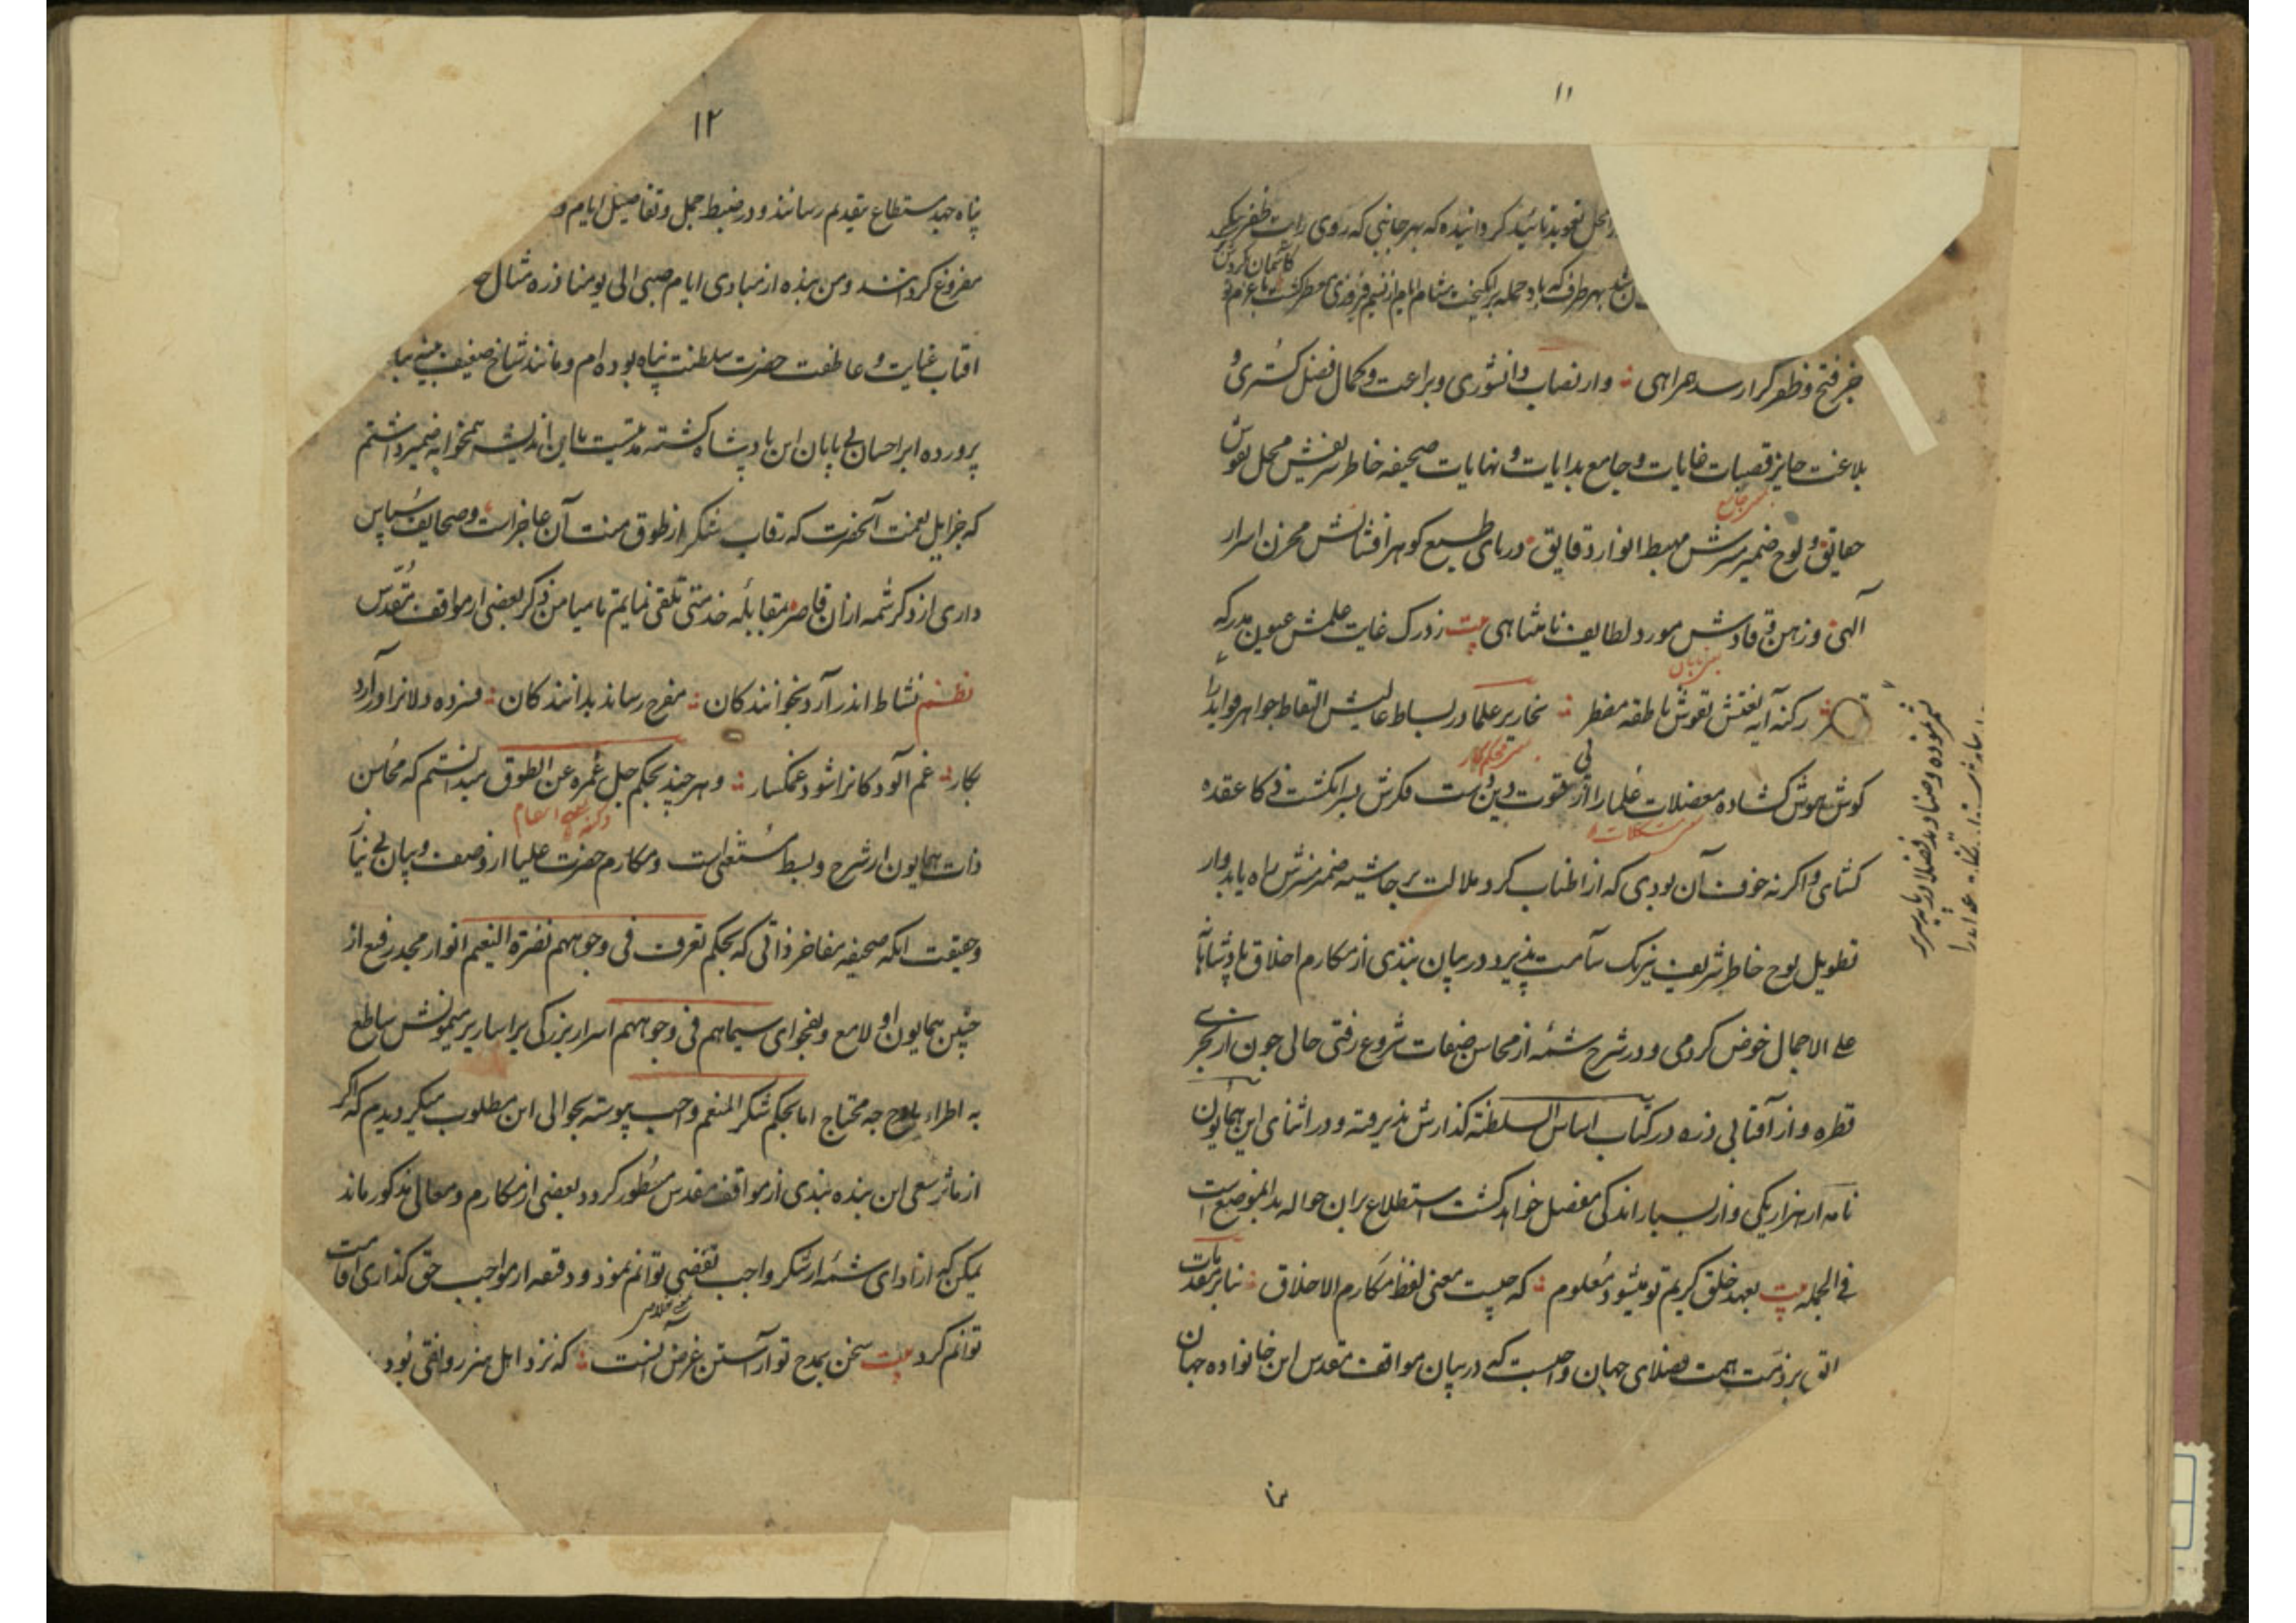 ۱۱
محل تعویذ تائید کردانیده که بهر جانبی که روی رایت ظفر پیکر
کاسمان کردش
بهر طرف که باد حمله برانکیخت مشام ایام از نسیم فیروزی معطر کشت با عزم تو
خبر فتح و ظفر کرار سد همراهی وار نصاب دانشوری وبراعت وکمال فضل کستری و
بلاغت حایز قصبات غایات و جامع بدایات و نهایات صحیفه خاطر شریفش محل نقوش
حقایق و لوح ضمیر منیرش مهبط انوار دقایق دریای طبع کوهر افشانش مخزن اسرار
آلهی و زهن وقادش مورد لطایف نامتناهی بیت ز درک غایت علمش عیون مدرکه
رکنه آیه نعتش نقوش ناطقه مضطر نحاریر علما در بساط عالیش التقاط جواهر فواید را
کوش هوش کشاده معضلات علما را از قوت فکرش بسر انکشت ذکا عقده
کشای و اکرنه خوف آن بودی که از اطناب کرد ملالت بر حاشیه ضمیر منیرش راه یابد و از
تطویل لوح خاطر شریف نیرنک سآمت پذیرد در بیان نبذی از مکارم اخلاق پادشاهانه
علی الاجمال خوض کردمی و در شرح شمه از محاسن صفات شروع رفتی حالی جون از بحری
قطره و از آفتابی ذره در کتاب اساس السلطنه کذارش پذیرفته و در اثنای این همایون
نامه از هزار یکی و از بسیار اندکی مفصل خواهد کشت استطلاع بران حواله بدان موضع است
فی الجمله بیت بعهد خلق کریم تو میشود معلوم که چیست معنی لفظ مکارم الاخلاق بنابر مقدمات
بر ذمت همت فضلای جهان واجبست که در بیان مواقف مقدس این خانواده جهان
۱۲
پناه جهد مستطاع بتقدیم رسانند و در ضبط جمل و تفاصیل ایام و
مفروغ کردانند و من بنده از مبادی ایام صبی الی یومنا ذره مثال
افتاب عنایت و عاطفت حضرت سلطنت پناه بوده ام و مانند شاخ ضعیف
پرورده ابر احسان بی پایان این پادشاه کشته مدتیست تا این اندیشه همخوابه ضمیر داشتم
که جزایل نعمت آنحضرت که رقاب شکر از طوق منت آن عاجز است و صحایف سپاس
داری از ذکر شمه ازان قاصر بمقابله خدمتی تلقی نمایم تا میامن ذکر بعضی از مواقف مقدس
نظم نشاط اندر آرد بخوانندکان مفرح رساند بدانندکان فسرده دلانرا در آرد
بکار غم آلودکانرا شود غمکسار و هر چند بحکم جل غمره عن الطوق میدانستم که محاسن
ذات همایون از شرح و بسط مستغنی است و مکارم حضرت علیا از وصف و بیان بی نیاز
وحقیقت انکه صحیفه مفاخر ذاتی که بحکم تعرف فی وجوههم نضرة النعیم انوار مجد رفیع از
جبین همایون او لامع و بفحوای سیماهم فی وجوههم اسرار بزرکی بر اساریر میمونش ساطع
به اطراء مادح جه محتاج اما بحکم شکر المنعم واجب پیوسته بحوالی این مطلوب میکردیدم که اکر
از ماثر سعی این بنده نبذی از مواقف مقدس مسطور کردد و بعضی از مکارم و معالی مذکور ماند
یمکن که از ادای شمه از شکر واجب تفصی توانم نمود و دقیقه از مواجب حق کذاری اقامت
توانم کرد بیت سخن بمدح تو آراستن غرض آنست که نزد اهل هنر رونقی بود